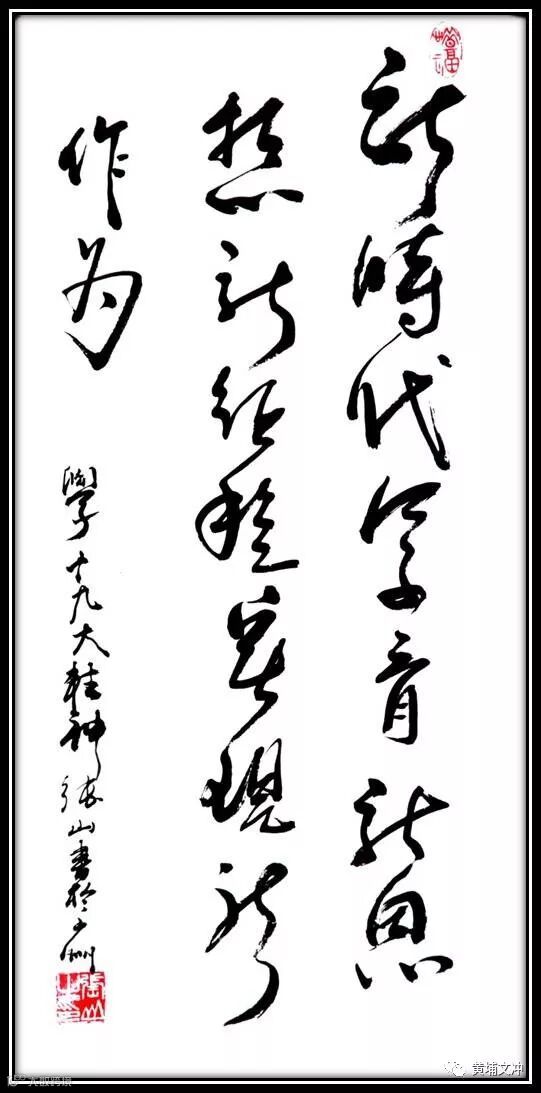 新時代孕育新思
想新征程展現新
作为
學十九大精神 山書於广州
黄埔文冲